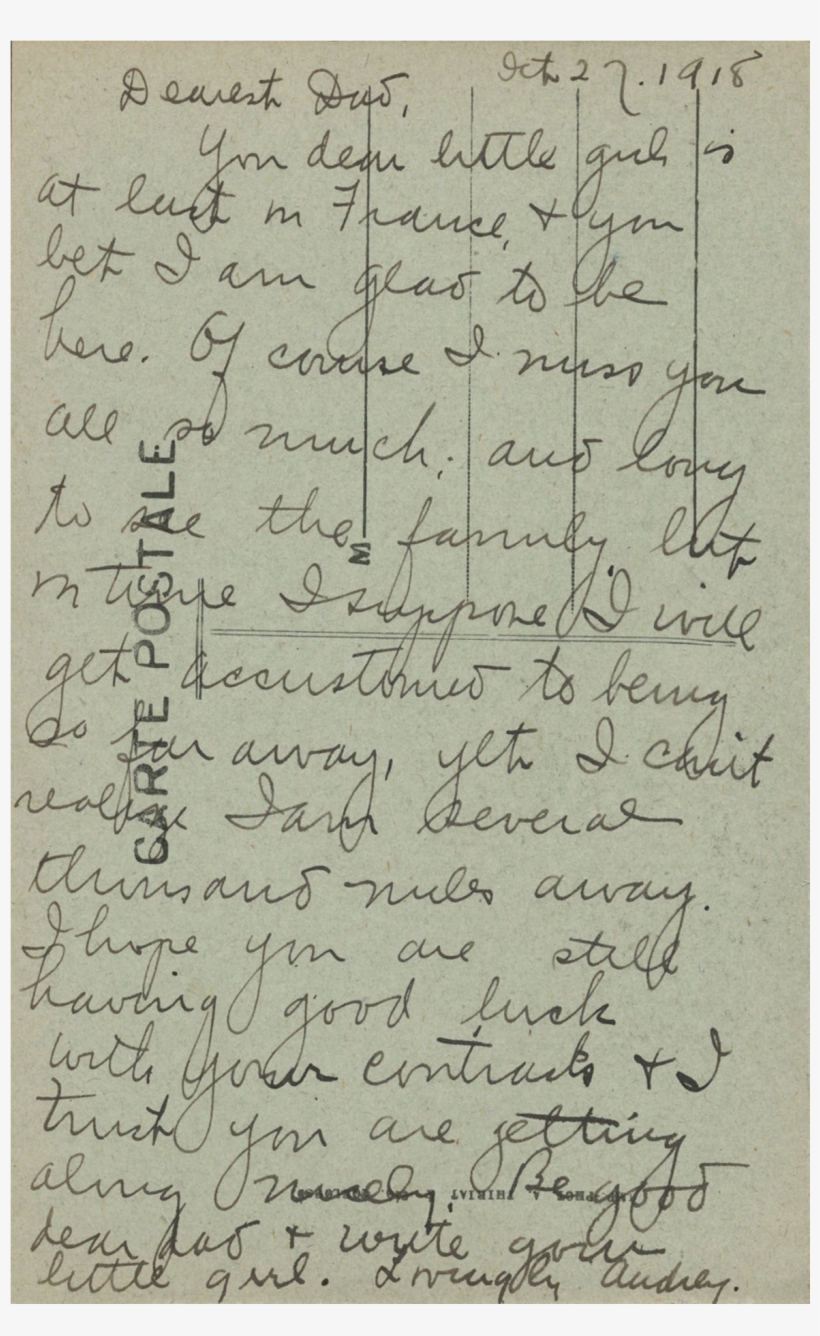 Oct 27. 1918
Dearest Dad,
You dear little girl is
at last in France, & you
bet I am glad to be
here. Of course I miss you
all so much; and long
to see the family, but
in time I suppose I will
get accustomed to being
so far away, yet I can't
realize I am several
thousand miles away.
I hope you are still
having good luck
with your contracts & I
trust you are getting
along nicely. Be good
dear dad & write your
little girl. Lovingly Audrey.
CARTE POSTALE
M